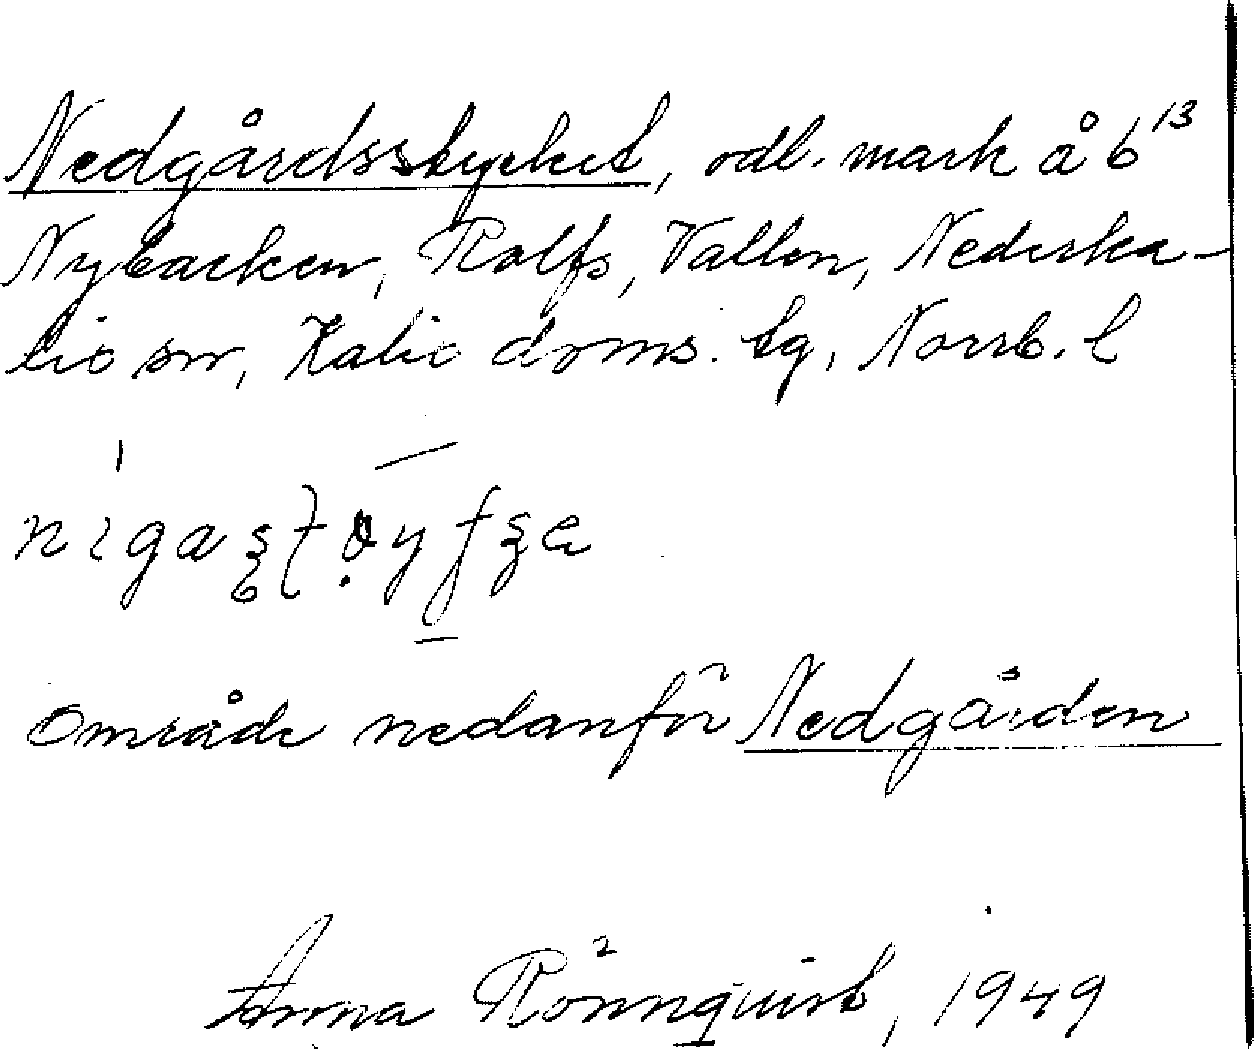 Nedgårdsstycket, odl. mark å 6¹³
Nybacken, Rolfs, Vallen, Nederka-
lix sn, Kalix doms. tg, Norrb. l
område nedanför Nedgården
Anna Rönnqvist, 1949